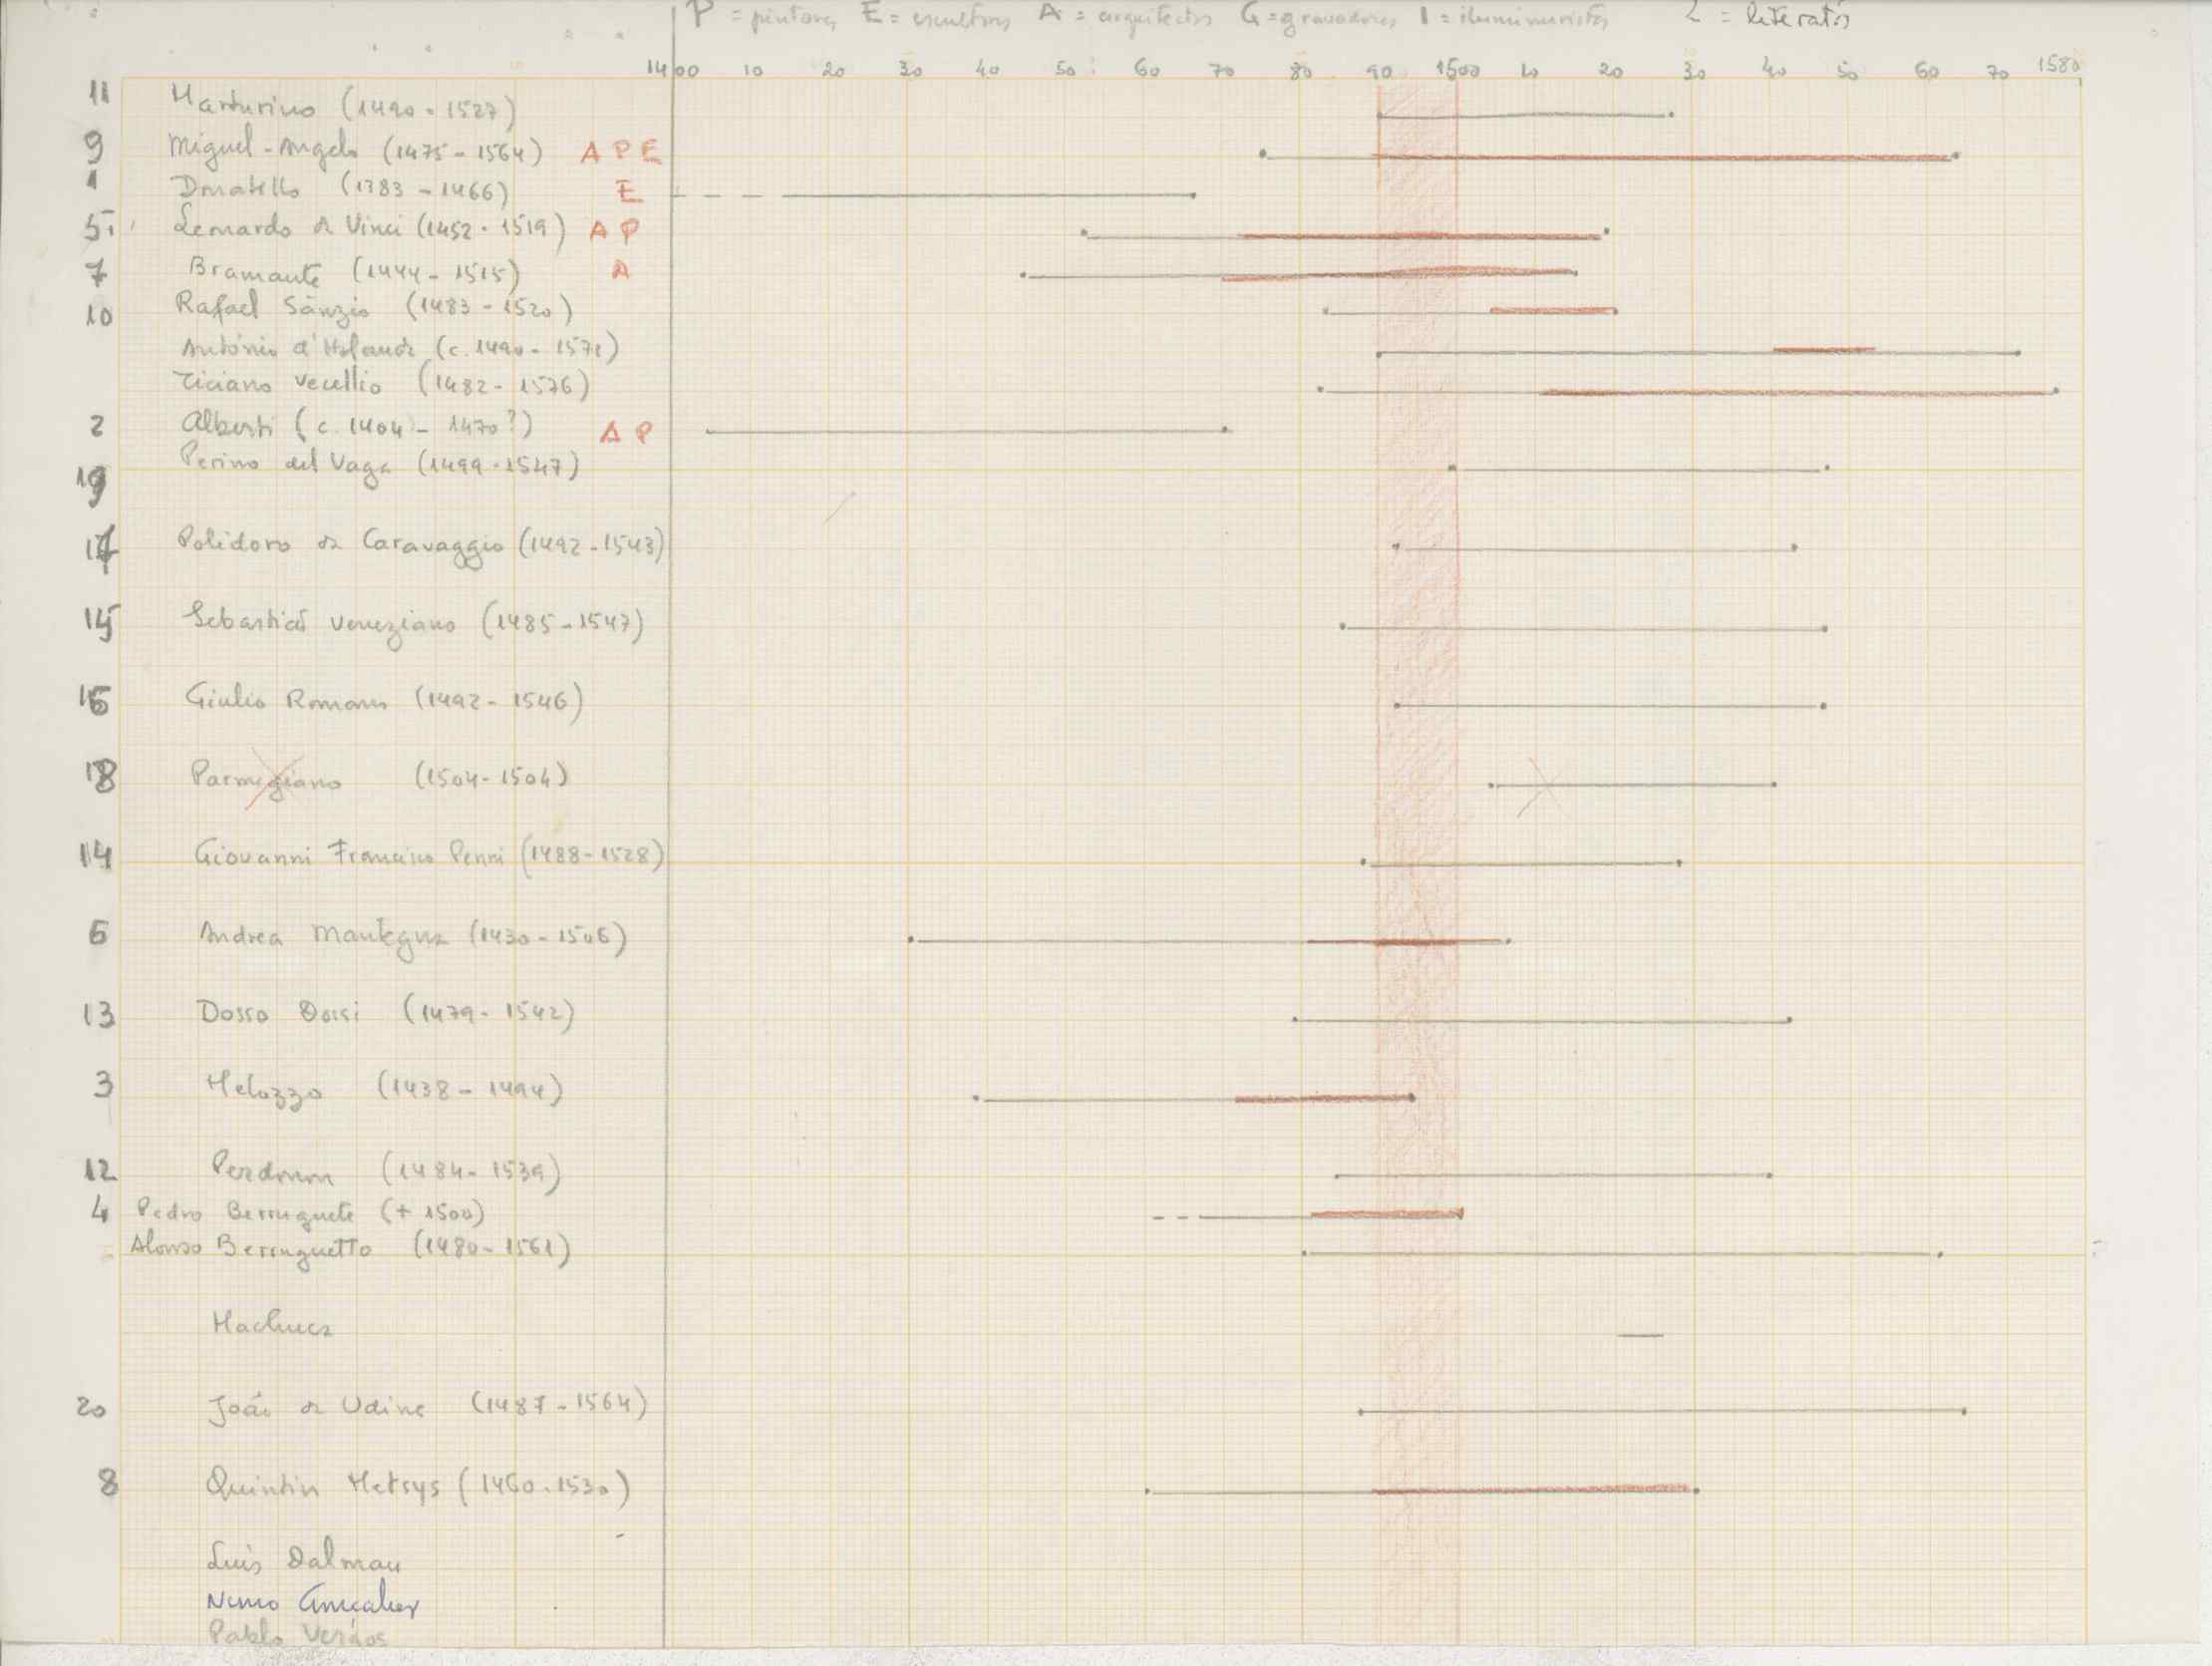 P = pintores E = escultores A = arquitectos G = gravadores I = iluminuristas L = literatos
1400 10 20 30 40 50 60 70 80 90 1500 10 20 30 40 50 60 70 1580
11 Marturino (1490 - 1527)
9 Miguel-Angelo (1475 - 1564) A P E
1 Donatello (1383 - 1466) E
5 Leonardo da Vinci (1452 - 1519) A P
7 Bramante (1444 - 1515) A
10 Rafael Sânzio (1483 - 1520)
António d'Holanda (c. 1490 - 1571)
Ticiano Vecellio (1482 - 1576)
2 Alberti (c. 1404 - 1470?) A P
19 Perino del Vaga (1499 - 1547)
17 Polidoro da Caravaggio (1492 - 1543)
15 Sebastião Veneziano (1485 - 1547)
16 Giulio Romano (1492 - 1546)
18 Parmigiano (1504 - 1504)
14 Giovanni Francisco Penni (1488 - 1528)
6 Andrea Mantegna (1430 - 1506)
13 Dosso Dossi (1479 - 1542)
3 Melozzo (1438 - 1494)
12 (1484 - 1539)
4 Pedro Berruguete (+ 1500)
Alonso Berruguetto (1480 - 1561)
Machuca
20 João da Udine (1487 - 1564)
8 Quintin Metsys (1460 - 1530)
Luis Dalmau
Nuno Gonçalves
Pablo Vergos